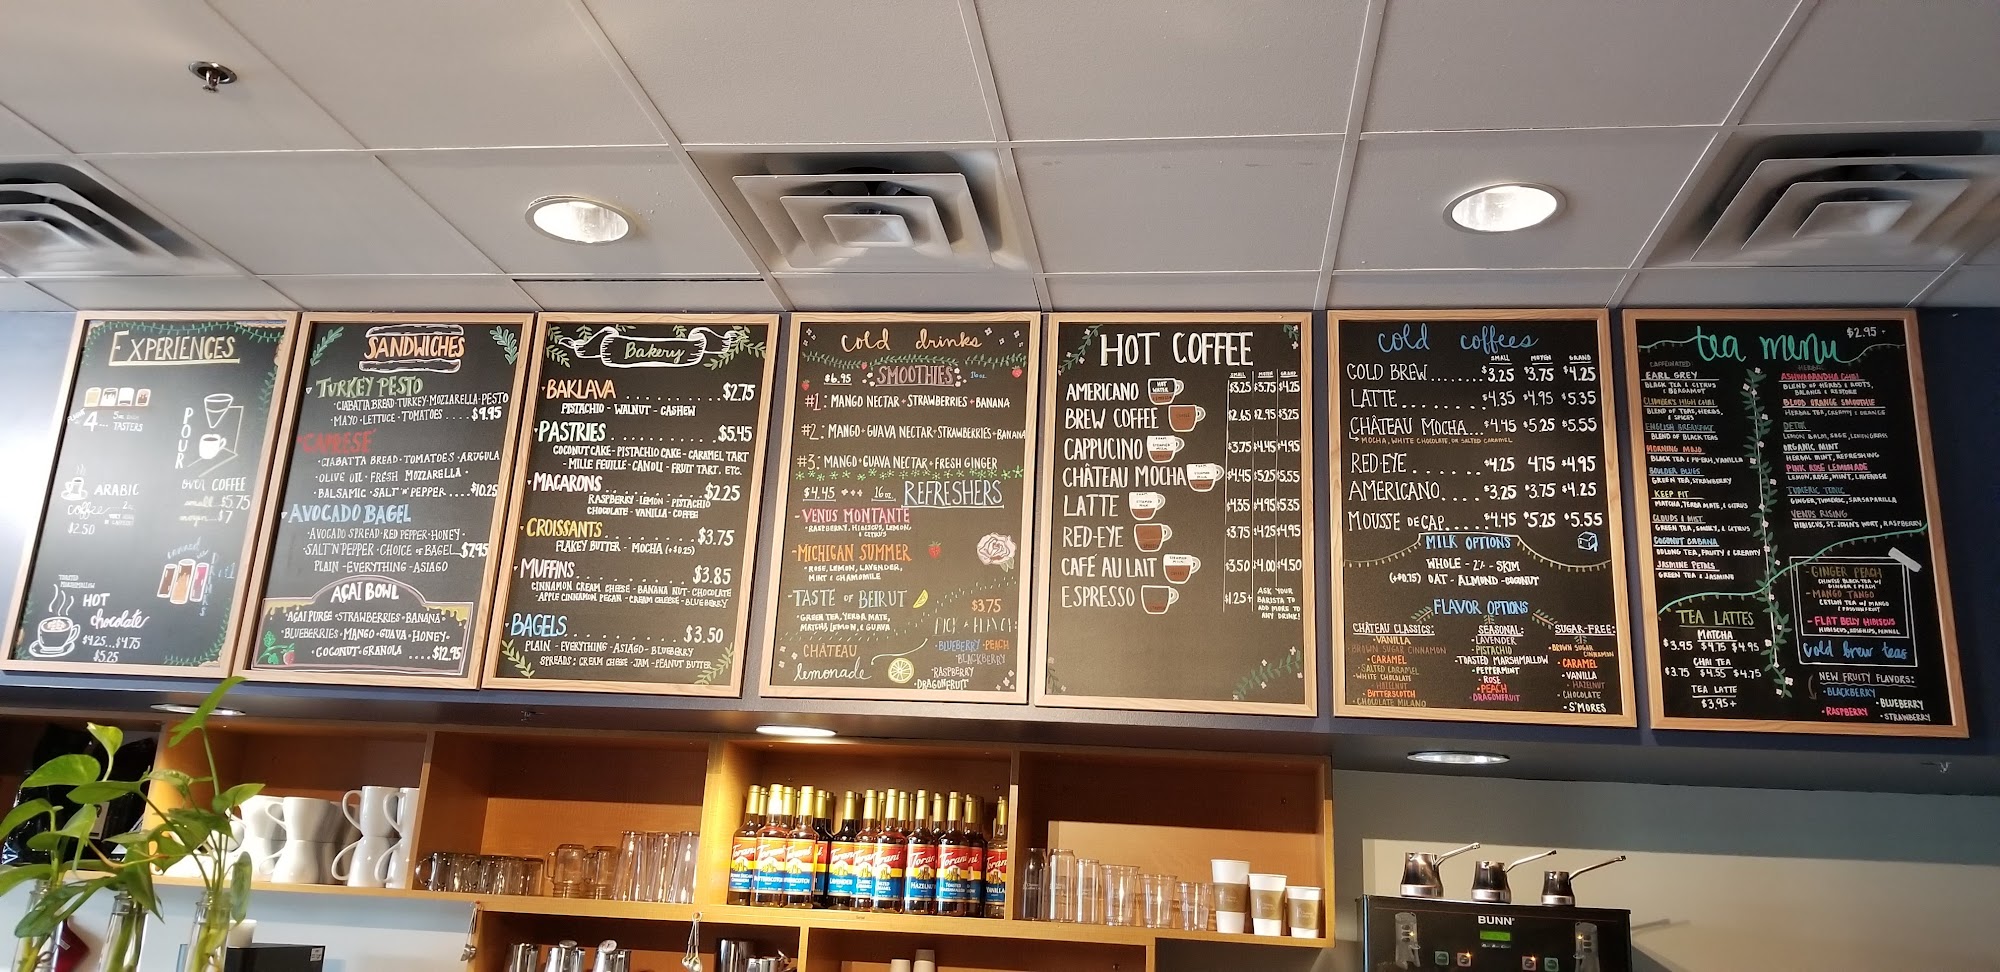 EXPERIENCES
4... TASTERS
POUR
OVER COFFEE
small $5.75
$7
ARABIC
coffee
$2.50
TOASTED
MARSHMALLOW
HOT
chocolate
$4.25..$4.75
$5.25
SANDWICHES
TURKEY PESTO
·CIABATTA BREAD·TURKEY·MOZZARELLA·PESTO
·MAYO·LETTUCE·TOMATOES....$9.95
CAPRESE
·CIABATTA BREAD·TOMATOES·ARUGULA
·OLIVE OIL·FRESH MOZZARELLA·
BALSAMIC·SALT 'N' PEPPER....$10.25
AVOCADO BAGEL
·AVOCADO SPREAD·RED PEPPER·HONEY·
·SALT 'N PEPPER·CHOICE of BAGEL..$7.95
PLAIN - EVERYTHING - ASIAGO
AÇAI BOWL
·AÇAI PUREE·STRAWBERRIES·BANANA·
·BLUEBERRIES·MANGO·GUAVA·HONEY·
·COCONUT·GRANOLA.....$12.95
Bakery
BAKLAVA $2.75
PISTACHIO - WALNUT - CASHEW
PASTRIES $5.45
COCONUT CAKE - PISTACHIO CAKE - CARAMEL TART
- MILLE FEUILLE - CANOLI - FRUIT TART. ETC.
MACARONS $2.25
RASPBERRY - LEMON - PISTACHIO
CHOCOLATE - VANILLA - COFFEE
CROISSANTS $3.75
FLAKEY BUTTER - MOCHA (+$0.25)
MUFFINS $3.85
CINNAMON CREAM CHEESE - BANANA NUT - CHOCOLATE
- APPLE CINNAMON PECAN - CREAM CHEESE - BLUEBERRY
BAGELS $3.50
PLAIN - EVERYTHING - ASIAGO - BLUEBERRY
SPREADS: CREAM CHEESE - JAM - PEANUT BUTTER
cold drinks
$6.95 SMOOTHIES 16oz
#1: MANGO NECTAR + STRAWBERRIES + BANANA
#2: MANGO + GUAVA NECTAR + STRAWBERRIES + BANANA
#3: MANGO + GUAVA NECTAR + FRESH GINGER
$4.45 16 oz. REFRESHERS
- VENUS MONTANTE
- RASPBERRY, HIBISCUS, LEMON,
& CITRUS
- MICHIGAN SUMMER
- ROSE, LEMON, LAVENDER,
MINT & CHAMOMILE
- TASTE OF BEIRUT
GREEN TEA, YERBA MATE,
MATCHA, LEMON, & GUAVA
- CHÂTEAU
lemonade
$3.75
- BLUEBERRY - PEACH
BLACKBERRY
- RASPBERRY
- DRAGONFRUIT
HOT COFFEE
SMALL MOYEN GRAND
AMERICANO $3.25 $3.75 $4.25
BREW COFFEE $2.65 $2.95 $3.25
CAPPUCINO $3.75 $4.45 $4.95
CHÂTEAU MOCHA $4.45 $5.25 $5.55
LATTE $4.35 $4.95 $5.35
RED-EYE $3.75 $4.25 $4.95
CAFÉ AU LAIT $3.50 $4.00 $4.50
ESPRESSO $1.25+ ASK YOUR
BARISTA TO
ADD MORE TO
ANY DRINK!
cold coffees
SMALL MOYEN GRAND
COLD BREW....... $3.25 $3.75 $4.25
LATTE........ $4.35 $4.95 $5.35
CHÂTEAU MOCHA....$4.45 $5.25 $5.55
MOCHA, WHITE CHOCOLATE, OR SALTED CARAMEL
RED-EYE........$4.25 4.75 $4.95
AMERICANO.....$3.25 $3.75 $4.25
MOUSSE DE CAP....$4.45 $5.25 $5.55
MILK OPTIONS
WHOLE - 2% - SKIM
(+$0.75) OAT - ALMOND - COCONUT
FLAVOR OPTIONS
CHÂTEAU CLASSICS:
· VANILLA
· BROWN SUGAR CINNAMON
· CARAMEL
· SALTED CARAMEL
- WHITE CHOCOLATE
· HAZELNUT
· BUTTERSCOTCH
· CHOCOLATE MILANO
SEASONAL:
· LAVENDER
· PISTACHIO
· TOASTED MARSHMALLOW
· PEPPERMINT
· ROSE
· PEACH
· DRAGONFRUIT
SUGAR-FREE:
· BROWN SUGAR
CINNAMON
· CARAMEL
· VANILLA
· HAZELNUT
· CHOCOLATE
· S'MORES
tea menu $2.95
CAFFEINATED
EARL GREY
BLACK TEA & CITRUS
& BERGAMOT
CLIMBER'S HIGH CHAI
BLEND OF TEAS, HERBS,
& SPICES
ENGLISH BREAKFAST
BLEND OF BLACK TEAS
MORNING MOJO
BLACK TEA & PU'ERH, VANILLA
BOULDER BLUES
GREEN TEA, STRAWBERRY
KEEP FIT
MATCHA, YERBA MATE, & CITRUS
CLOUDS & MIST
GREEN TEA, SMOKY, & CITRUS
COCONUT CABANA
OOLONG TEA, FRUITY & CREAMY
JASMINE PETALS
GREEN TEA & JASMINE
TEA LATTES
MATCHA
$3.95 $4.75 $4.95
CHAI TEA
$3.75 $4.55 $4.75
TEA LATTE
$3.95+
HERBAL
ASHWAGANDHA CHAI
BLEND OF HERBS & ROOTS,
BALANCE & RESTORE
BLOOD ORANGE SMOOTHIE
HERBAL TEA, CREAMY & ORANGE
DETOX
LEMON BALM, SAGE, LEMONGRASS
ORGANIC MINT
HERBAL MINT, REFRESHING
PINK ROSE LEMONADE
LEMON, ROSE, MINT, LAVENDER
TURMERIC TONIC
GINGER, TURMERIC, SARSAPARILLA
VENUS RISING
HIBISCUS, ST. JOHN'S WORT, RASPBERRY
- GINGER PEACH
CHINESE BLACK TEA W/
GINGER & PEACH
- MANGO TANGO
CEYLON TEA W/ MANGO
& PASSIONFRUIT
- FLAT BELLY HIBISCUS
HIBISCUS, ROSEHIPS, FENNEL
Cold brew teas
NEW FRUITY FLAVORS:
· BLACKBERRY
· BLUEBERRY
· RASPBERRY
· STRAWBERRY
Torani
Torani
LAVENDER
HAZELNUT
VANILLA
BUNN